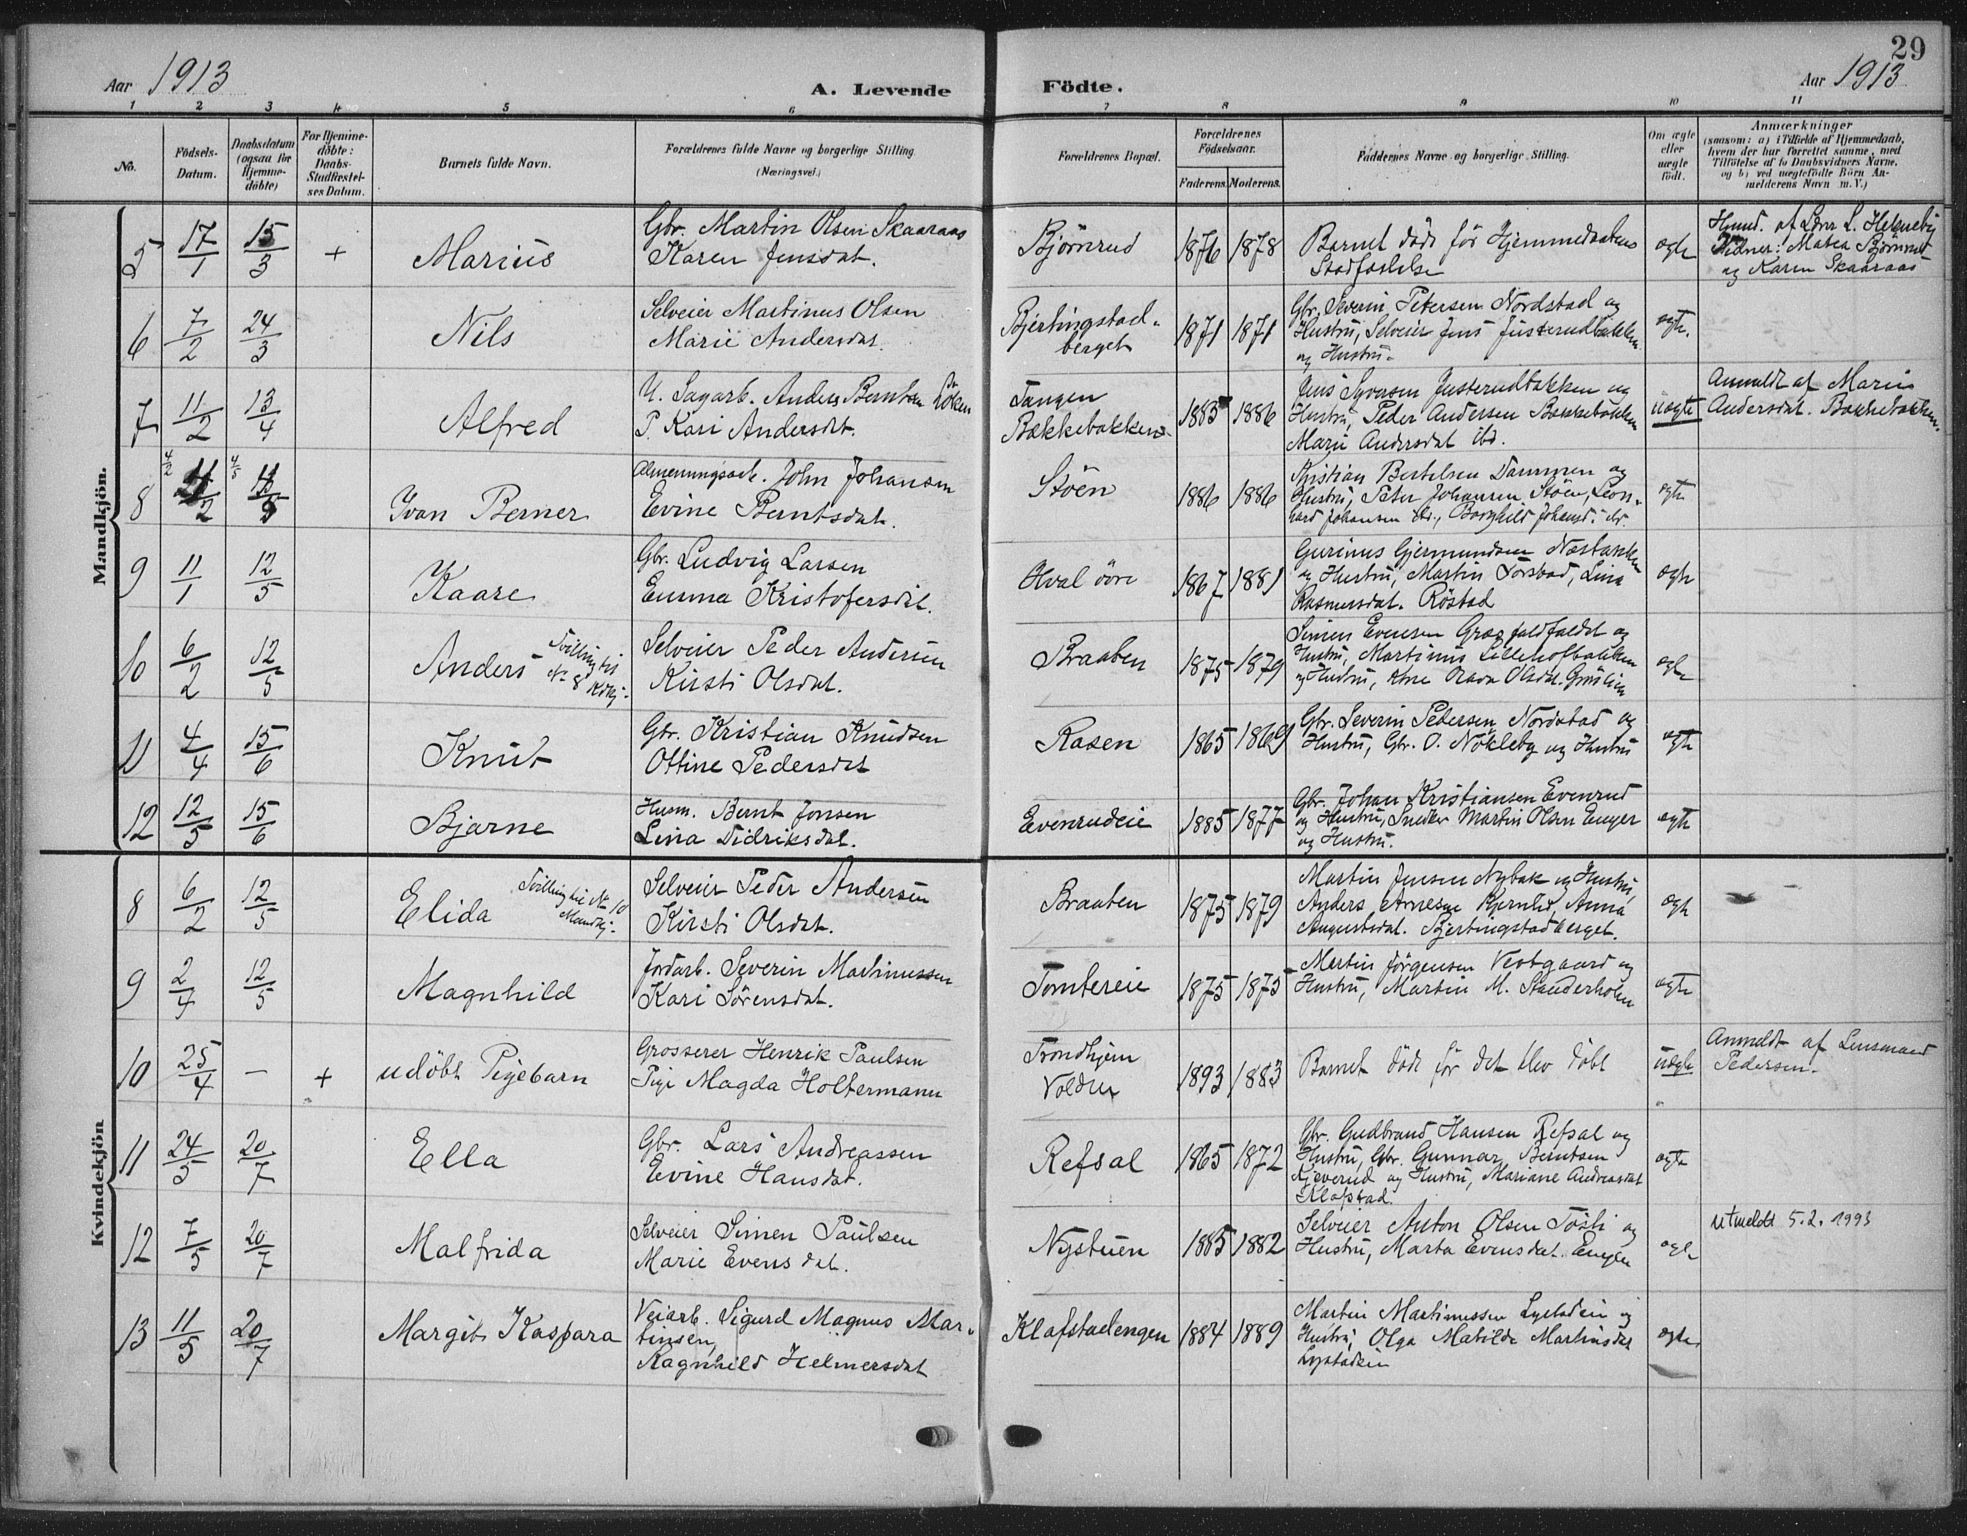 29
Aar 1913
A. Levende
Födte.
Aar 1913
1 2 3 4 5 6 7 8 9 10 11
No.
Födsels-
Datum.
Daabsdatum
(ogsaa for
Hjemme-
döbte)
For Hjemme-
döbte:
Daabs-
Stadfæstel-
ses Datum.
Barnets fulde Navn.
Forældrenes fulde Navne og borgerlige Stilling.
(Næringsvei.)
Forældrenes Bopæl.
Forældrenes
Födselsaar.
Faderens. Moderens.
Faddernes Navne og borgerlige Stilling.
Om ægte
eller
uægte
födt.
Anmærkninger
(saasom: a) i Tilfælde af Hjemmedaab,
hvem der har forrettet samme, med
Tilföielse af to Daabsvidners Navne,
og b) ved uægtefödte Börn An-
melderens Navn m. V.)
Mandkjön.
5 17/1 15/3 + Marius
Gbr. Martin Olsen Skaaraas
Karen Jensdat.
Bjørnrud 1876 1878
Barnet døde før Hjemmedaabens
Stadfæstelse
ægte
Hjmd. af L. Helmeby
Vidner: Matea Bjørnrud
og Karen Skaaraas
6 7/2 24/3 Nils
Selveier Martinus Olsen
Marie Andersdat.
Bjertingstad-
berget
1871 1871
Gbr. Severin Petersen Nordstad og
Hustru, Selveier Jens Justerudbakken
og Hustru.
ægte.
7 11/2 13/4 Alfred
U. Sagarb. Anders Berntsen Löken
P. Kari Andersdat.
Tangen
Bækkebakken
1885 1886
Jens Syversen Justerudbakken og
Hustru, Peder Andersen Bækkebakken
Marie Andersdat ibd.
uægte
Anmeldt af Marie
Andersdat. Bækkebakken.
8 4/2 4/5 Ivan Berner
Almenningsarb. John Johansen
Evine Berntsdat.
Stöen 1886 1886
Kristian Bertelsen Dammen og
Hustru, Peter Johansen Stöen, Leon-
hard Johansen ibd., Borghild Johansd. ibd.
ægte
9 11/1 12/5 Kaare
Gbr. Ludvig Larsen
Emma Kristofersdat.
Hval övre 1867 1881
Gurinus Gjermundsen Næsbakken
og Hustru, Martin Torsbad, Lina
Rasmusdat. Röstad
ægte
10 6/2 12/5 Anders Tvilling til
No 8 Kvkj.
Selveier Peder Andersen
Kirsti Olsdat.
Braaten 1875 1879
Simen Evensen og
Hustru, Martinus Lillehofbakken
og Hustru, Olava Olsdat. Grönlien
ægte
11 4/4 15/6 Knut
Gbr. Kristian Knudsen
Ottine Pedersdat
Rasen 1865 1869
Gbr. Severin Pedersen Nordstad og
Hustru, Gbr. O. Nökleby og Hustru
ægte
12 12/5 15/6 Bjarne
Husm. Bernt Jonsen
Lina Didriksdat.
Evenrudeie 1885 1877
Gbr. Johan Kristiansen Evenrud
og Hustru, Snedker Martin Olsen Enger
og Hustru.
ægte
Kvindekjön
8 6/2 12/5 Elida Tvilling til No 10
Mandkj.
Selveier Peder Andersen
Kirsti Olsdat.
Braaten 1875 1879
Martin Jensen Nybak og Hustru,
Anders Arnesen Kjernlid, Anna
Augustsdat. Bjertingstadberget.
ægte
9 2/4 12/5 Magnhild
Jordarb. Severin Martinussen
Kari Sörensdat.
Tomtereie 1875 1875
Martin Jörgensen Vestgaard og
Hustru, Martin M. Standerholen
ægte
10 25/4 — + udöbt Pigebarn
Grosserer Henrik Paulsen
Pige Magda Holtermann
Trondhjem
Volden
1893 1883
Barnet döde för det blev döbt
uægte
Anmeldt af Lensmand
Pedersen.
11 24/5 20/7 Ella
Gbr. Lars Andreassen
Evine Hansdat.
Refsal 1865 1872
Gbr. Gudbrand Hansen Refsal og
Hustru, Gbr. Gunnar Berntsen
Kjeverud og Hustru, Mariane Andreasdat
Klafstad.
ægte
12 7/5 20/7 Malfrida
Selveier Simen Paulsen
Marie Evensdat.
Nystuen 1885 1882
Selveier Anton Olsen Tösti og
Hustru, Marta Evensdat. Engen
ægte
utmeldt 5.2.1993
13 11/5 20/7 Margit Kaspara
Veiarb. Sigurd Magnus Mar-
tinsen,
Ragnhild Helmersdat
Klafstadengen 1884 1889
Martin Martinussen Lystadeie og
Hustru, Olga Matilde Martinsdat
Lystadeie
ægte